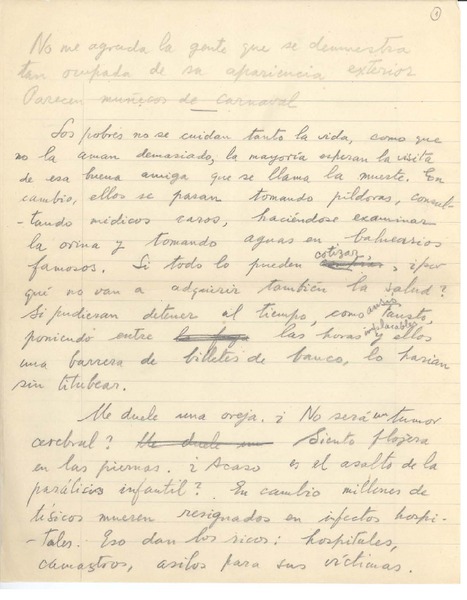 1
No me agrada la gente que se demuestra
tan ocupada de su apariencia exterior
Parecen muñecos de carnaval
Los pobres no se cuidan tanto la vida, como que
no la aman demasiado, la mayoría esperan la visita
de esa buena amiga que se llama la muerte. En
cambio, ellos se pasan tomando píldoras, consul-
-tando médicos caros, haciéndose examinar
la orina y tomando aguas en balnearios
famosos. Si todo lo pueden cotizar, ¿por
qué no van a adquirir también la salud?
Si pudiesen detener al tiempo, como fausto,
poniendo entre las horas implacables y ellos
una barrera de billetes de banco, lo harían
sin titubear.
Me duele una oreja. ¿No será un tumor
cerebral? Me duele Siento flojera
en las piernas. ¿Acaso es el asalto de la
parálisis infantil? En cambio millones de
tísicos mueren resignados en infectos hospi-
-tales. Eso dan los ricos: hospitales,
camastros, asilos para sus víctimas.